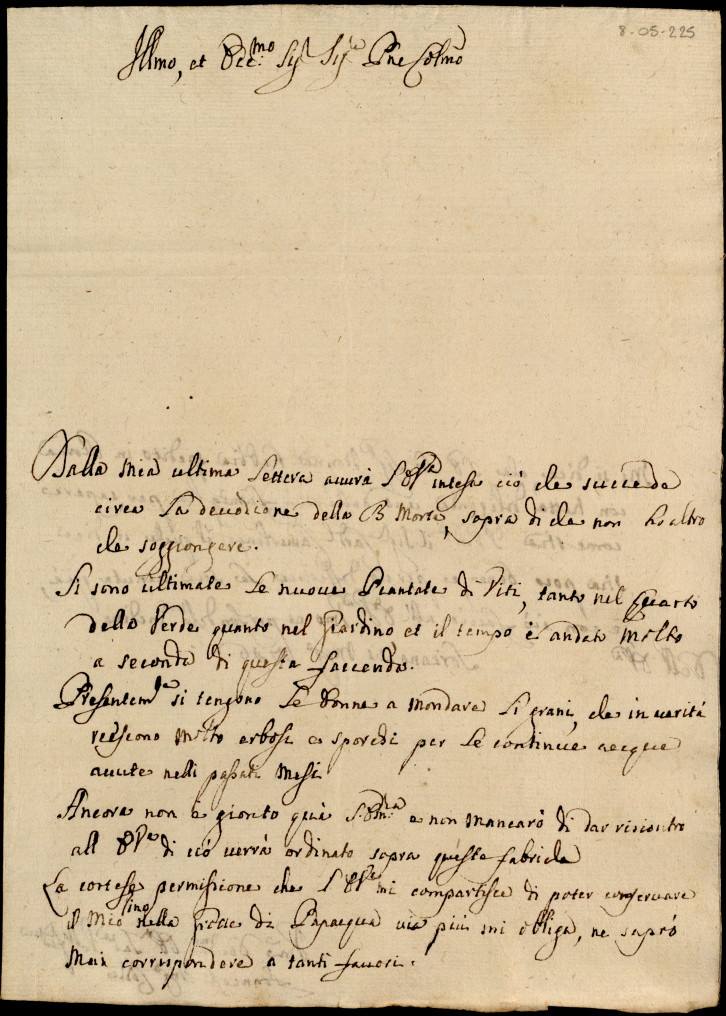 8-05-225
Illmo, et Ecc:mo Sigr Sigr Pne Colmo
Dalla mia ultima Lettera avvrà l'E.V.ra intesa ciò che succede
circa La devozione della B Morta, sopra di che non ho altro
che soggiongere.
Si sono ultimate Le nuove Piantate di Viti, tanto nel Quarto
della Verde quanto nel Giardino et il tempo è andato molto
a seconda di questa faccenda.
Presentemte si tengono Le donne a mondare Li grani, che in verità
reescono molto erbosi e sporchi per Le continue acque
avute nelli passati Mesi
Ancora non è gionto quà S: Em:za e non mancarò di dar riscontro
all' di ciò verrà ordinato sopra queste fabriche
La cortese permissione che mi compartisce di poter conservare
il mio lino nella di Papacqua via più mi obliga, ne saprò
Mai corrispondere a tanti favori.